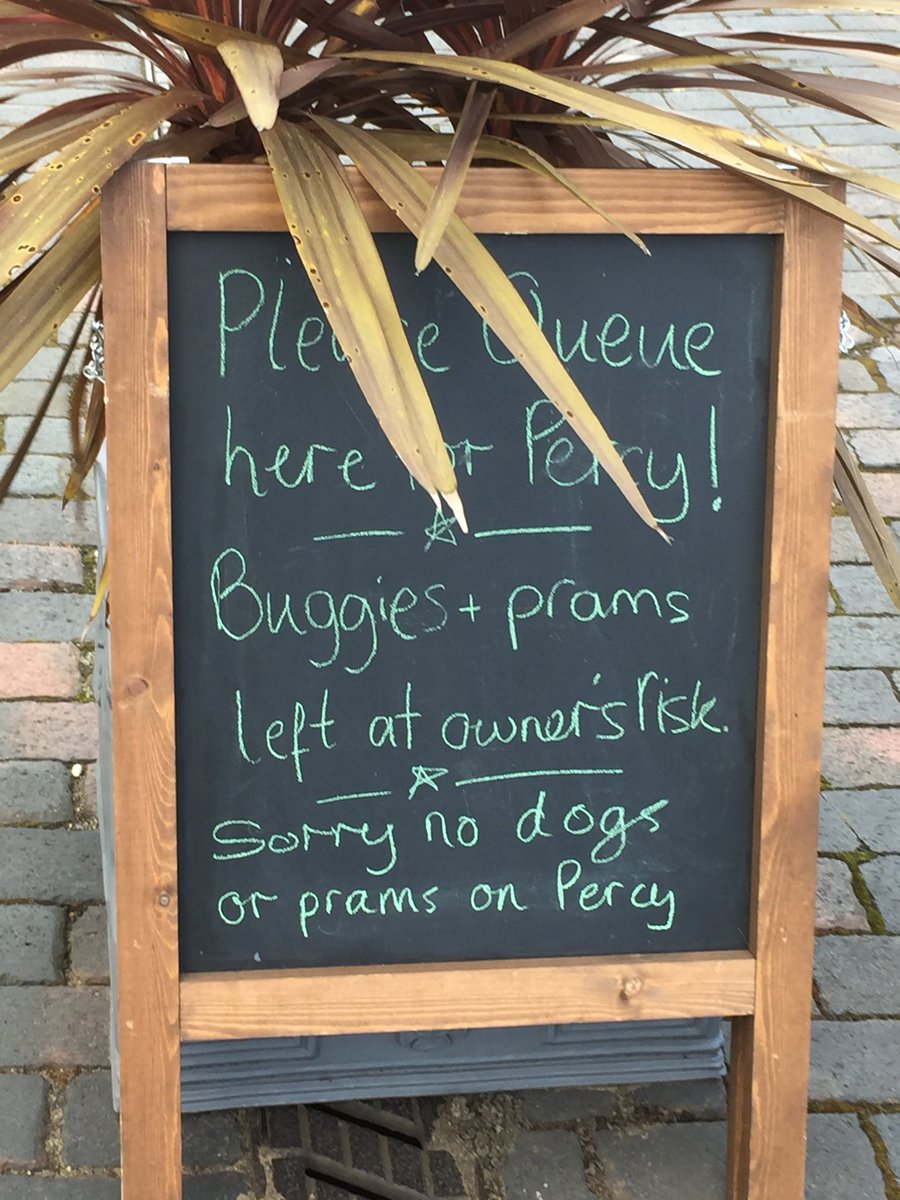 Please Queue
here for Percy!
Buggies + prams
left at owner's risk.
Sorry no dogs
or prams on Percy